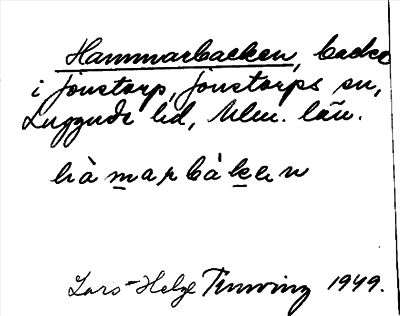 Hammarbacken, backe
i Jonstorp, Jonstorps sn,
Luggude hd, Mlm. län.
hàmarbàken
Lars-Helge Tunving 1949.